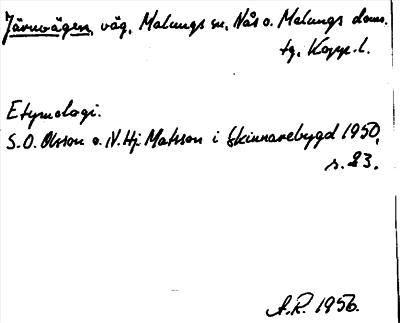 Järnvägen, väg, Malungs sn, Nås o. Malungs doms.
tg, Kopp. l.
Etymologi.
S. O. Olsson o. N. Hj. Matsson i Skinnarebygd 1950,
s. 23.
A. R. 1956.